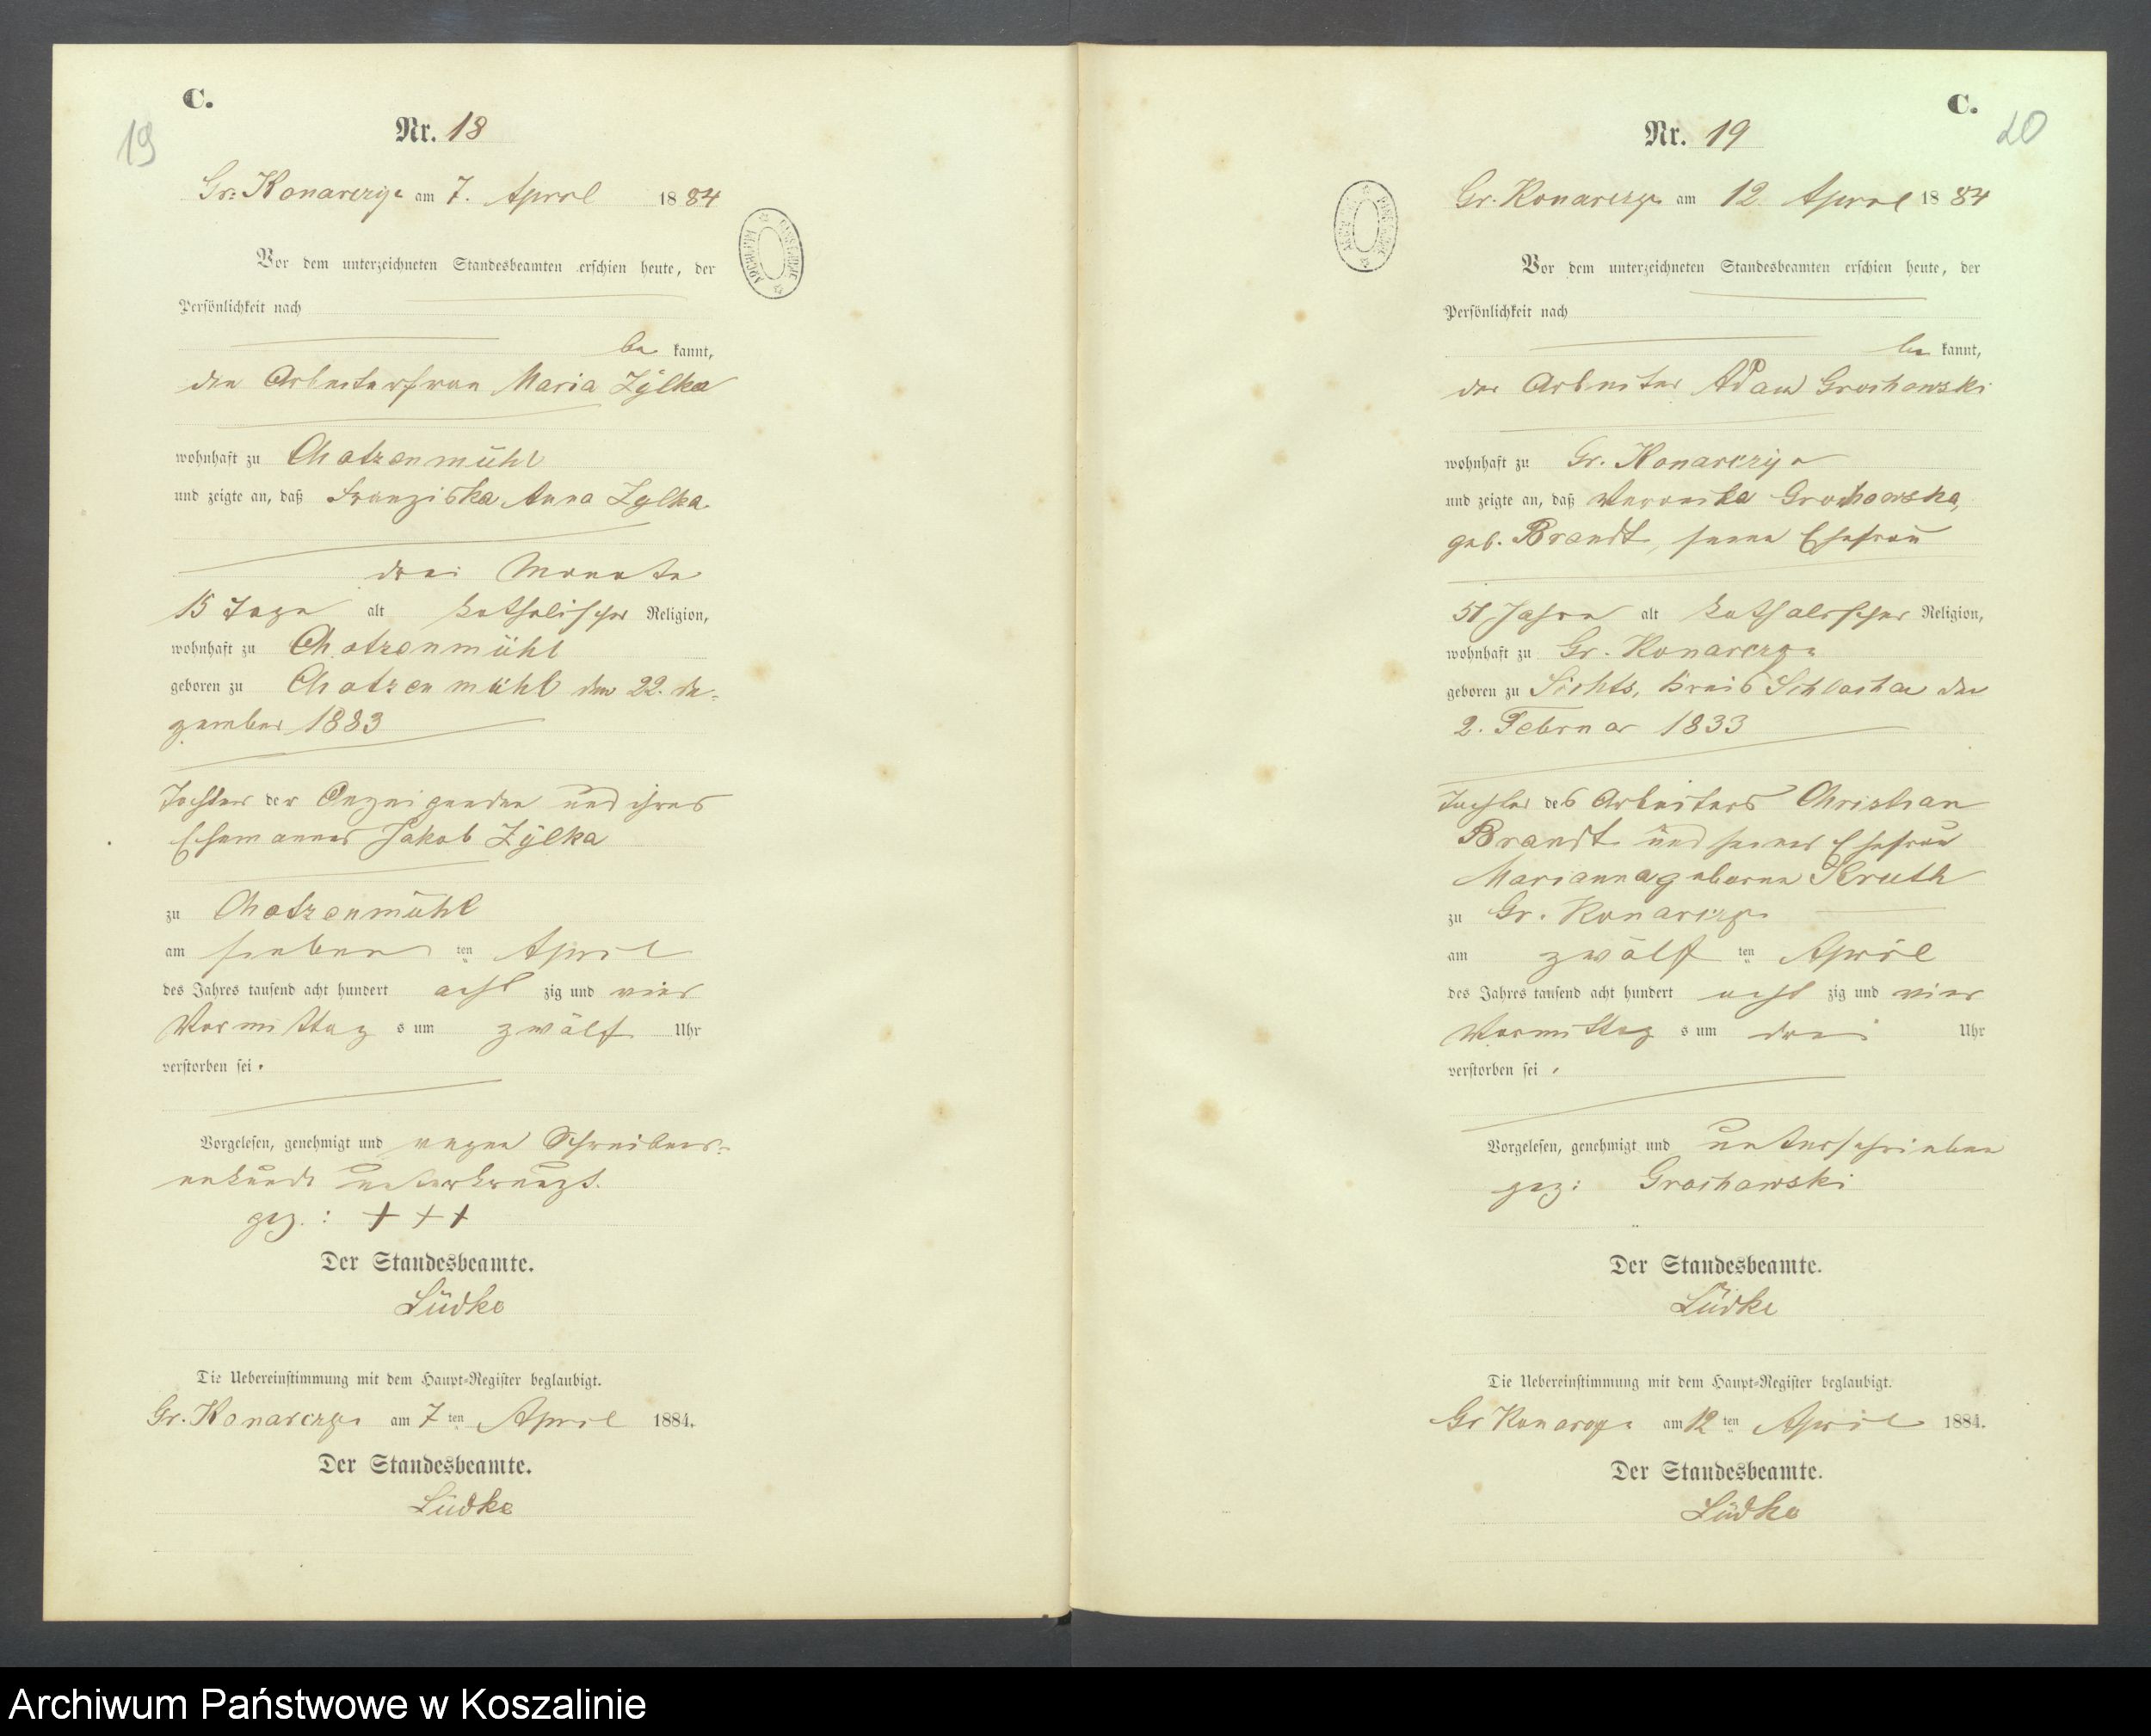 C.
19
Nr. 18
Gr. Konarczyn am 7. April 1884
Vor dem unterzeichneten Standesbeamten erschien heute, der
Persönlichkeit nach
be kannt,
die Arbeiterfrau Maria Zÿlka
wohnhaft zu Chotzenmühl
und zeigte an, daß Franziska Anna Zylka
drei Monate
15 Tage alt katholischer Religion,
wohnhaft zu Chotzenmühl
geboren zu Chotzenmühl den 22. De-
zember 1883
Tochter der Anzeigenden und ihres
Ehemannes Jakob Zÿlka
zu Chotzenmühl
am sieben ten April
des Jahres tausend acht hundert acht zig und vier
Vormittag s um zwölf Uhr
verstorben sei.
Vorgelesen, genehmigt und wegen Schreibens-
unkunde unterkreuzt.
gez.: + + +
Der Standesbeamte.
Lüdke
Die Uebereinstimmung mit dem Haupt-Register beglaubigt.
Gr. Konarczyn am 7 ten April 1884.
Der Standesbeamte.
Lüdke
C.
20
Nr. 19
Gr. Konarczyn am 12 April 1884
Vor dem unterzeichneten Standesbeamten erschien heute, der
Persönlichkeit nach
be kannt,
der Arbeiter Adam Grochowski
wohnhaft zu Gr. Konarczyn
und zeigte an, daß Veronika Grochowska,
geb. Brandt, seine Ehefrau
51 Jahre alt katholischer Religion,
wohnhaft zu Gr. Konarczyn
geboren zu Sichts, Kreis Schlochau den
2. Februar 1833
Tochter des Arbeiters Christian
Brandt und seiner Ehefrau
Marianna geborene Kruth
zu Gr. Konarczyn
am zwölf ten April
des Jahres tausend acht hundert acht zig und vier
Vormittag s um drei Uhr
verstorben sei.
Vorgelesen, genehmigt und unterschrieben
gez: Grochowski
Der Standesbeamte.
Lüdke
Die Uebereinstimmung mit dem Haupt-Register beglaubigt.
Gr Konarczyn am 12 ten April 1884.
Der Standesbeamte.
Lüdke
Archiwum Państwowe w Koszalinie